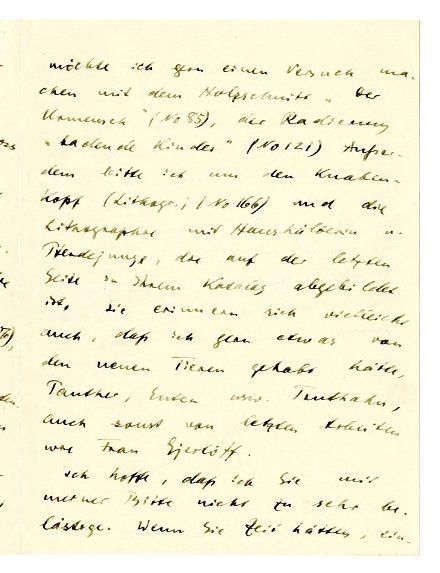 möchte ich gern einen Versuch ma-
chen mit dem Holzschnitt „Der
Urmensch" (No 85), der Radierung
„badende Kinder" (No 121) Außer-
dem bitte ich um den Knaben-
kopf (Lithogr.; No 166) und die
Lithographie mit Haushälterin u.
Pferdejunge, die auf der letzten
Seite in Ihrem Katalog abgebildet
ist, Sie erinnern sich vielleicht
auch, daß ich gern etwas von
den neuen Tieren gehabt hätte,
Panther, Enten usw. Truthahn,
auch sonst von letzten Arbeiten
wie Frau Gjerlöff.
Ich hoffe, daß ich Sie mit
meiner Bitte nicht zu sehr be-
lästige. Wenn Sie Zeit hätten, ein-